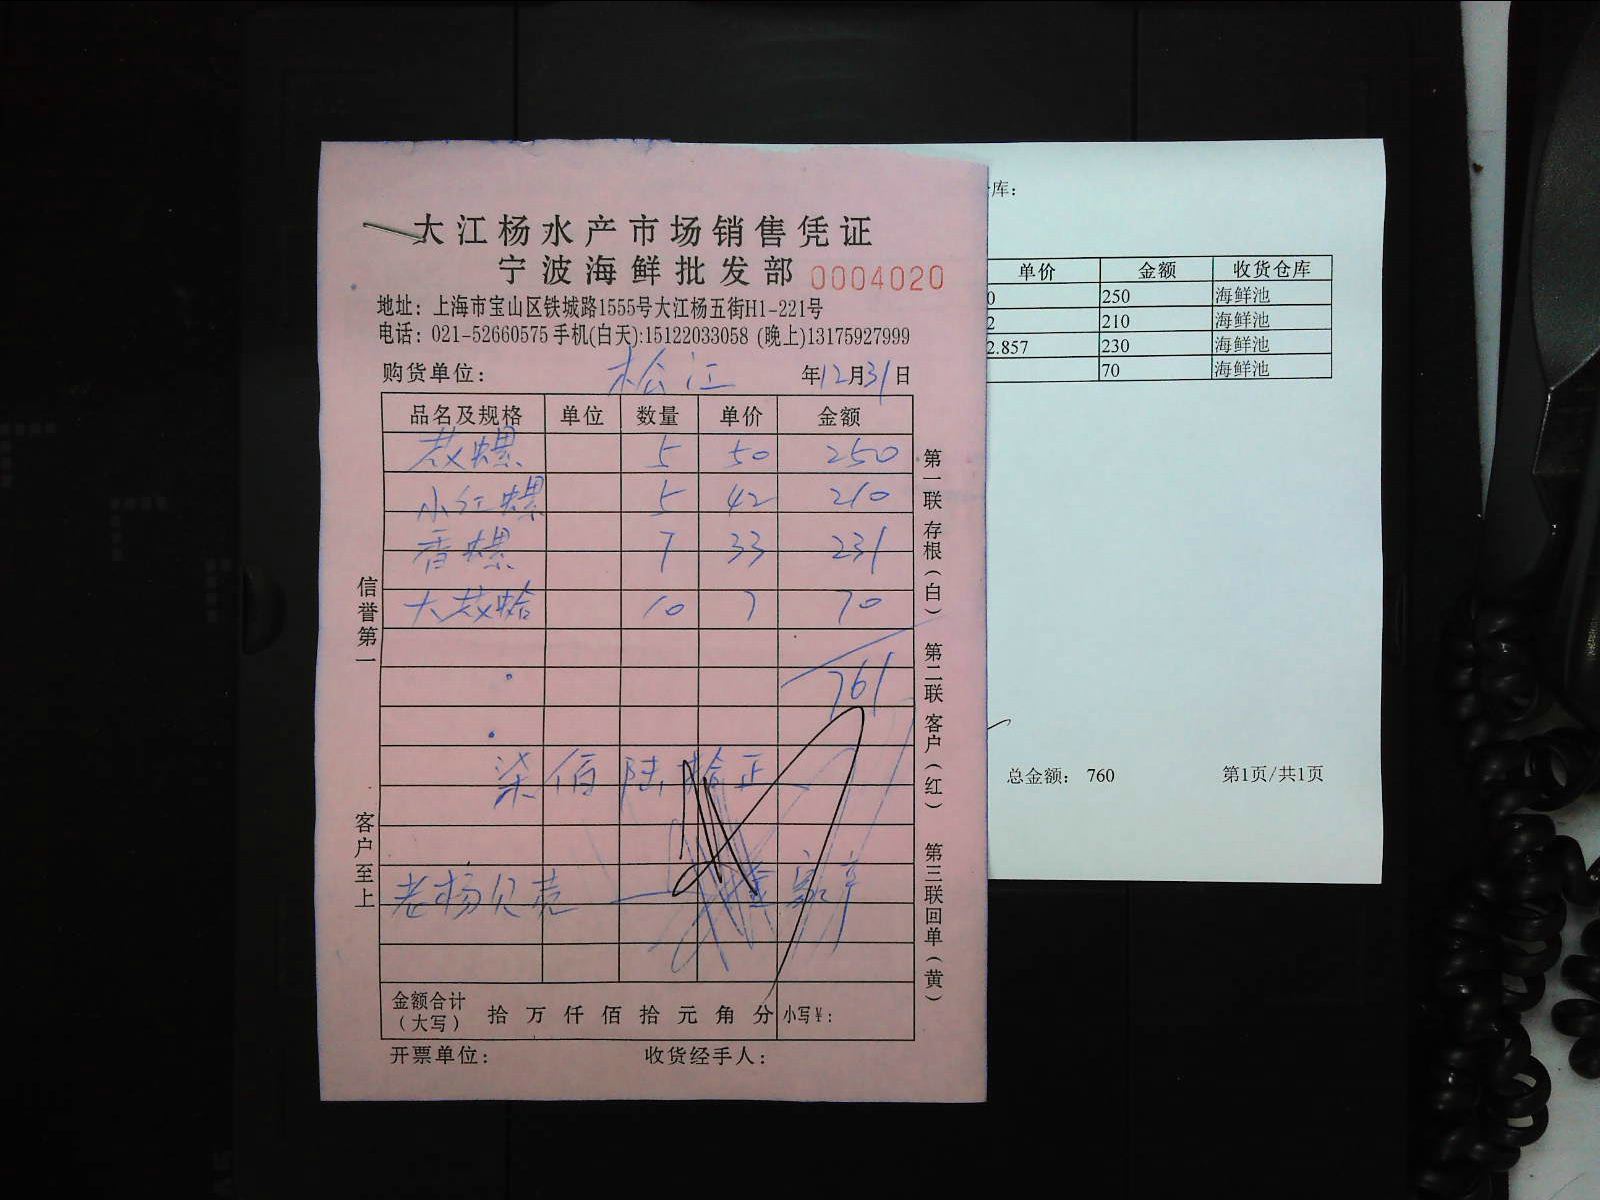 大江杨水产市场销售凭证
宁波海鲜批发部 0004020
地址：上海市宝山区铁城路1555号大江杨五街H1-221号
电话：021-52660575 手机(白天):15122033058 (晚上)13175927999
购货单位： 松江 年12月31日
品名及规格 单位 数量 单价 金额
螺 5 50 250
小红螺 5 42 210
香螺 7 33 231
大 蛤 10 7 70
761
柒佰陆拾正
老杨贝壳
金额合计（大写） 拾 万 仟 佰 拾 元 角 分 小写¥：
开票单位： 收货经手人：
信誉第一
客户至上
第一联存根（白）
第二联客户（红）
第三联回单（黄）
库：
单价 金额 收货仓库
0 250 海鲜池
2 210 海鲜池
2.857 230 海鲜池
70 海鲜池
总金额： 760 第1页/共1页